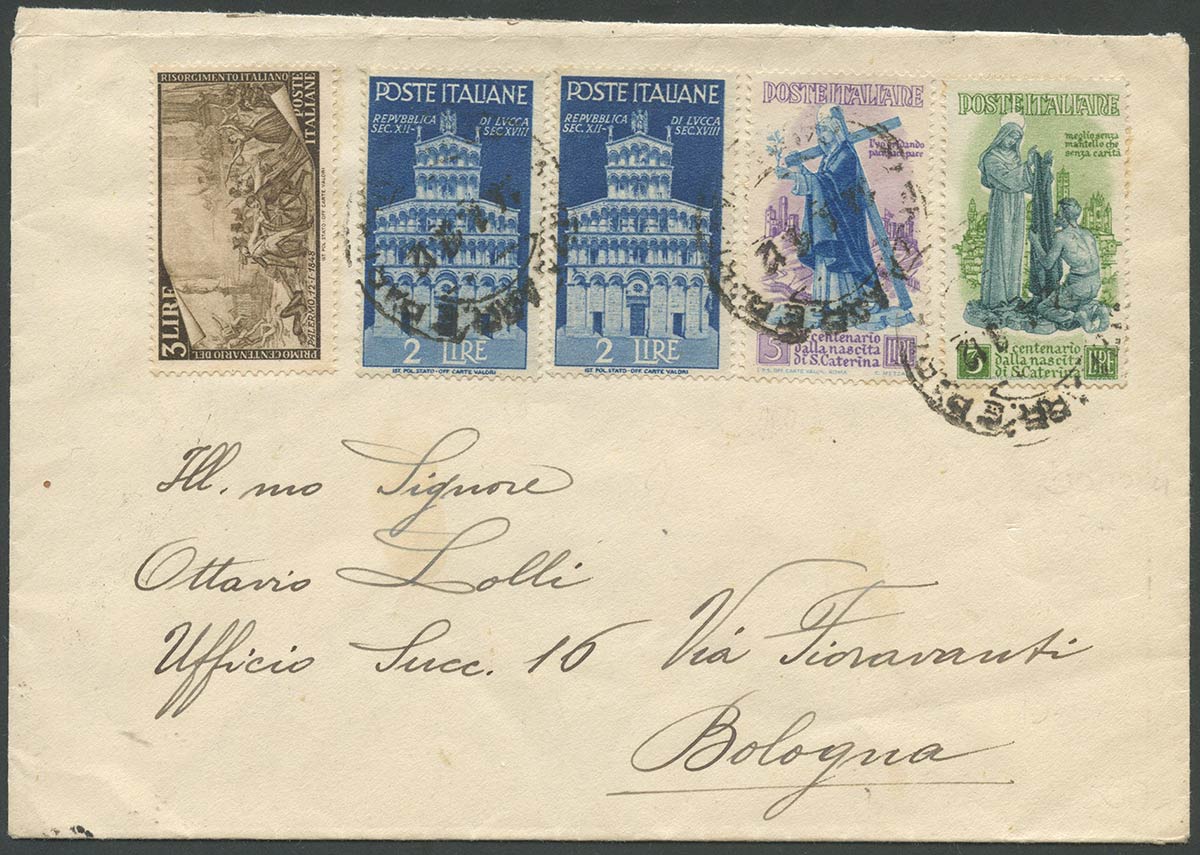 RISORGIMENTO ITALIANO
POSTE
ITALIANE
3 LIRE
PRIMO CENTENARIO DEL
PALERMO, 12-1-1848
IST. POL. STATO OFF. CARTE VALORI
POSTE ITALIANE
REPVBBLICA DI LVCCA
SEC. XII - SEC XVIII
2 LIRE
IST. POL. STATO - OFF. CARTE VALORI
POSTE ITALIANE
REPVBBLICA DI LVCCA
SEC. XII - SEC XVIII
2 LIRE
IST. POL. STATO - OFF. CARTE VALORI
POSTE ITALIANE
pace pace
3 VI centenario LIRE
dalla nascita
di S. Caterina
POSTE ITALIANE
meglio senza
mantello che
senza carità
3 VI centenario LIRE
dalla nascita
di S. Caterina
Ill. mo Signore
Ottavio Lolli
Ufficio Succ. 16 Via Fioravanti
Bologna